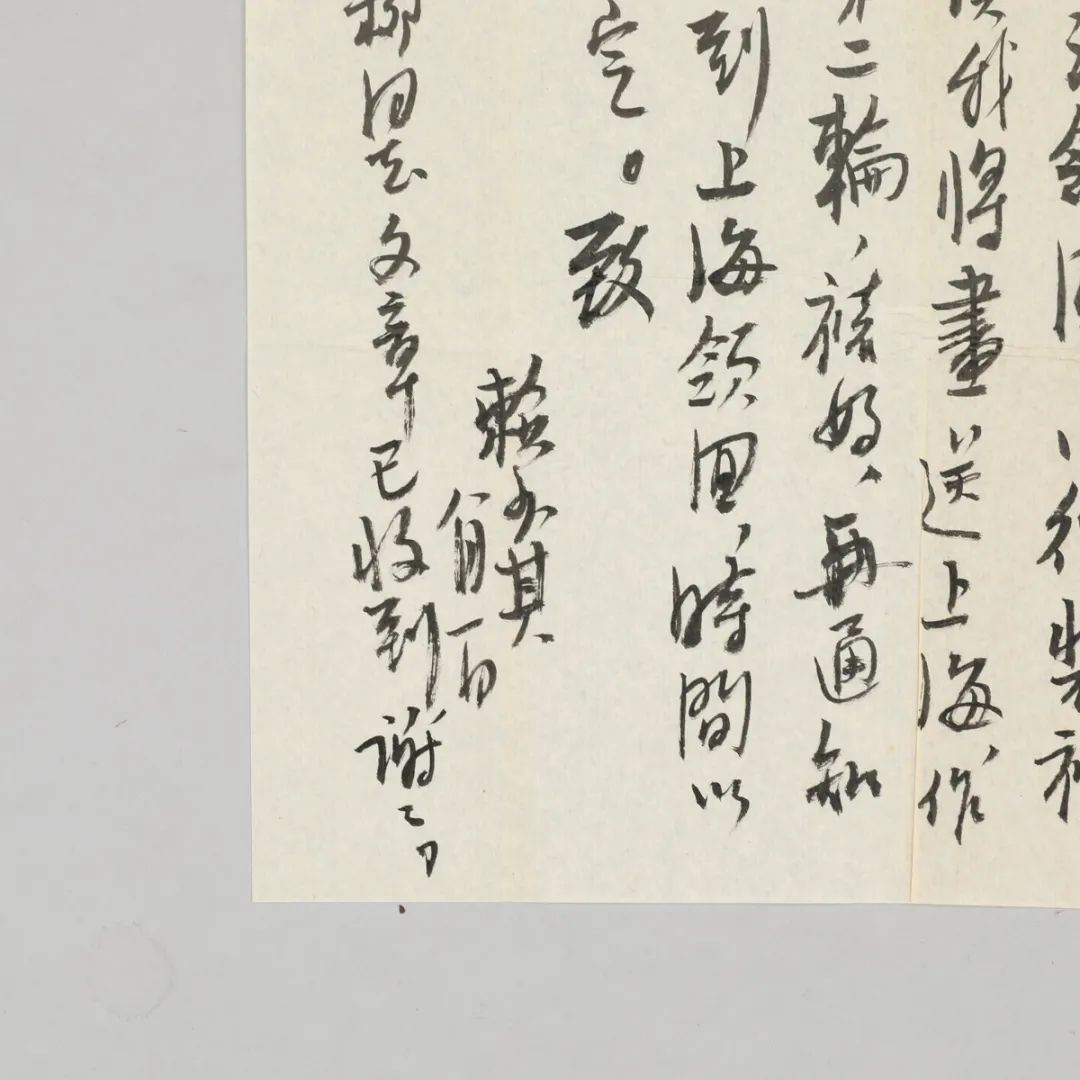 我將畫送上海、作
二輪、裱好、再通知
到上海領回、時間以
定。致
賴少其
八月一日
柳同志文章已收到謝〻